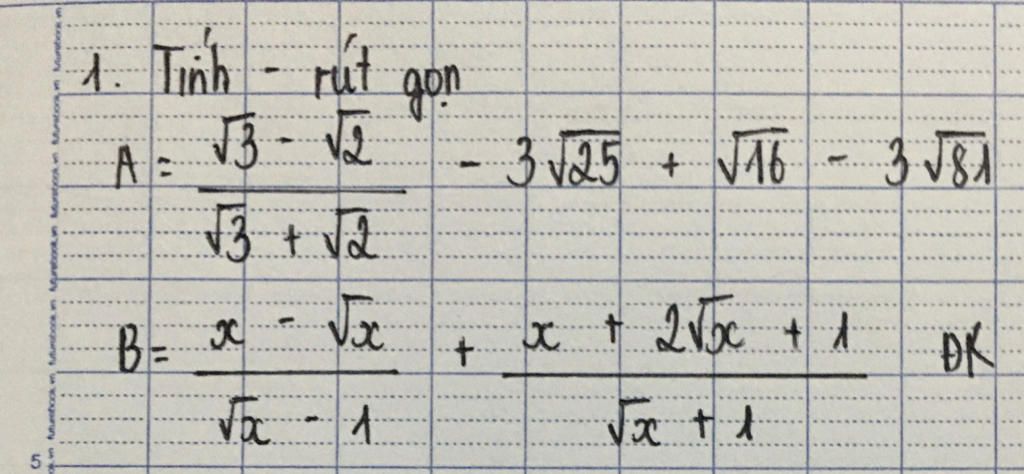 1. Tính - rút gọn
A = (√3 - √2) / (√3 + √2) - 3√25 + √16 - 3√81
B = (x - √x) / (√x - 1) + (x + 2√x + 1) / (√x + 1) ĐK
5